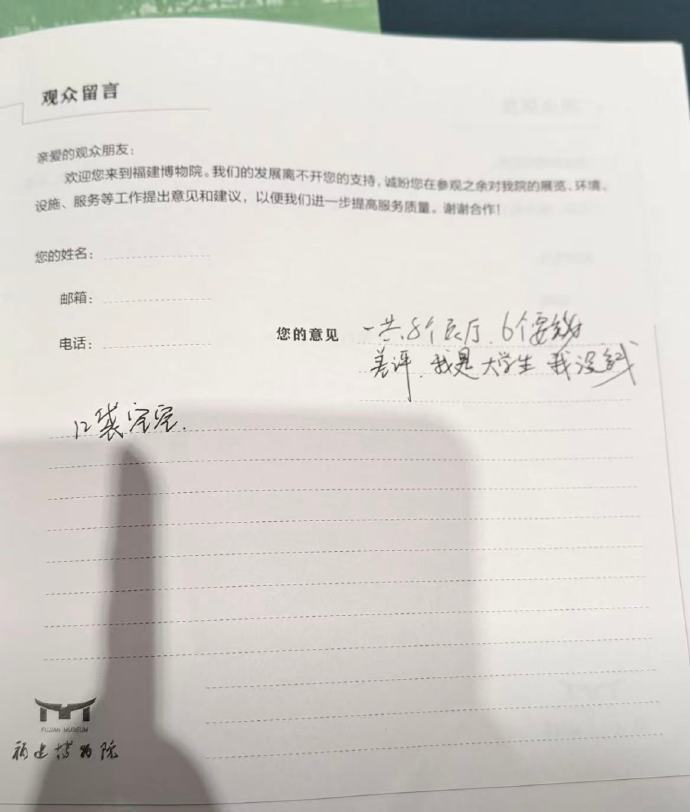 观众留言
亲爱的观众朋友：
欢迎您来到福建博物院。我们的发展离不开您的支持，诚盼您在参观之余对我院的展览、环境、
设施、服务等工作提出意见和建议，以便我们进一步提高服务质量。谢谢合作！
您的姓名：
邮箱：
电话：
您的意见
一共8个展厅、6个要钱
差评、我是大学生 我没钱
口袋空空.
FUJIAN MUSEUM
福建博物院